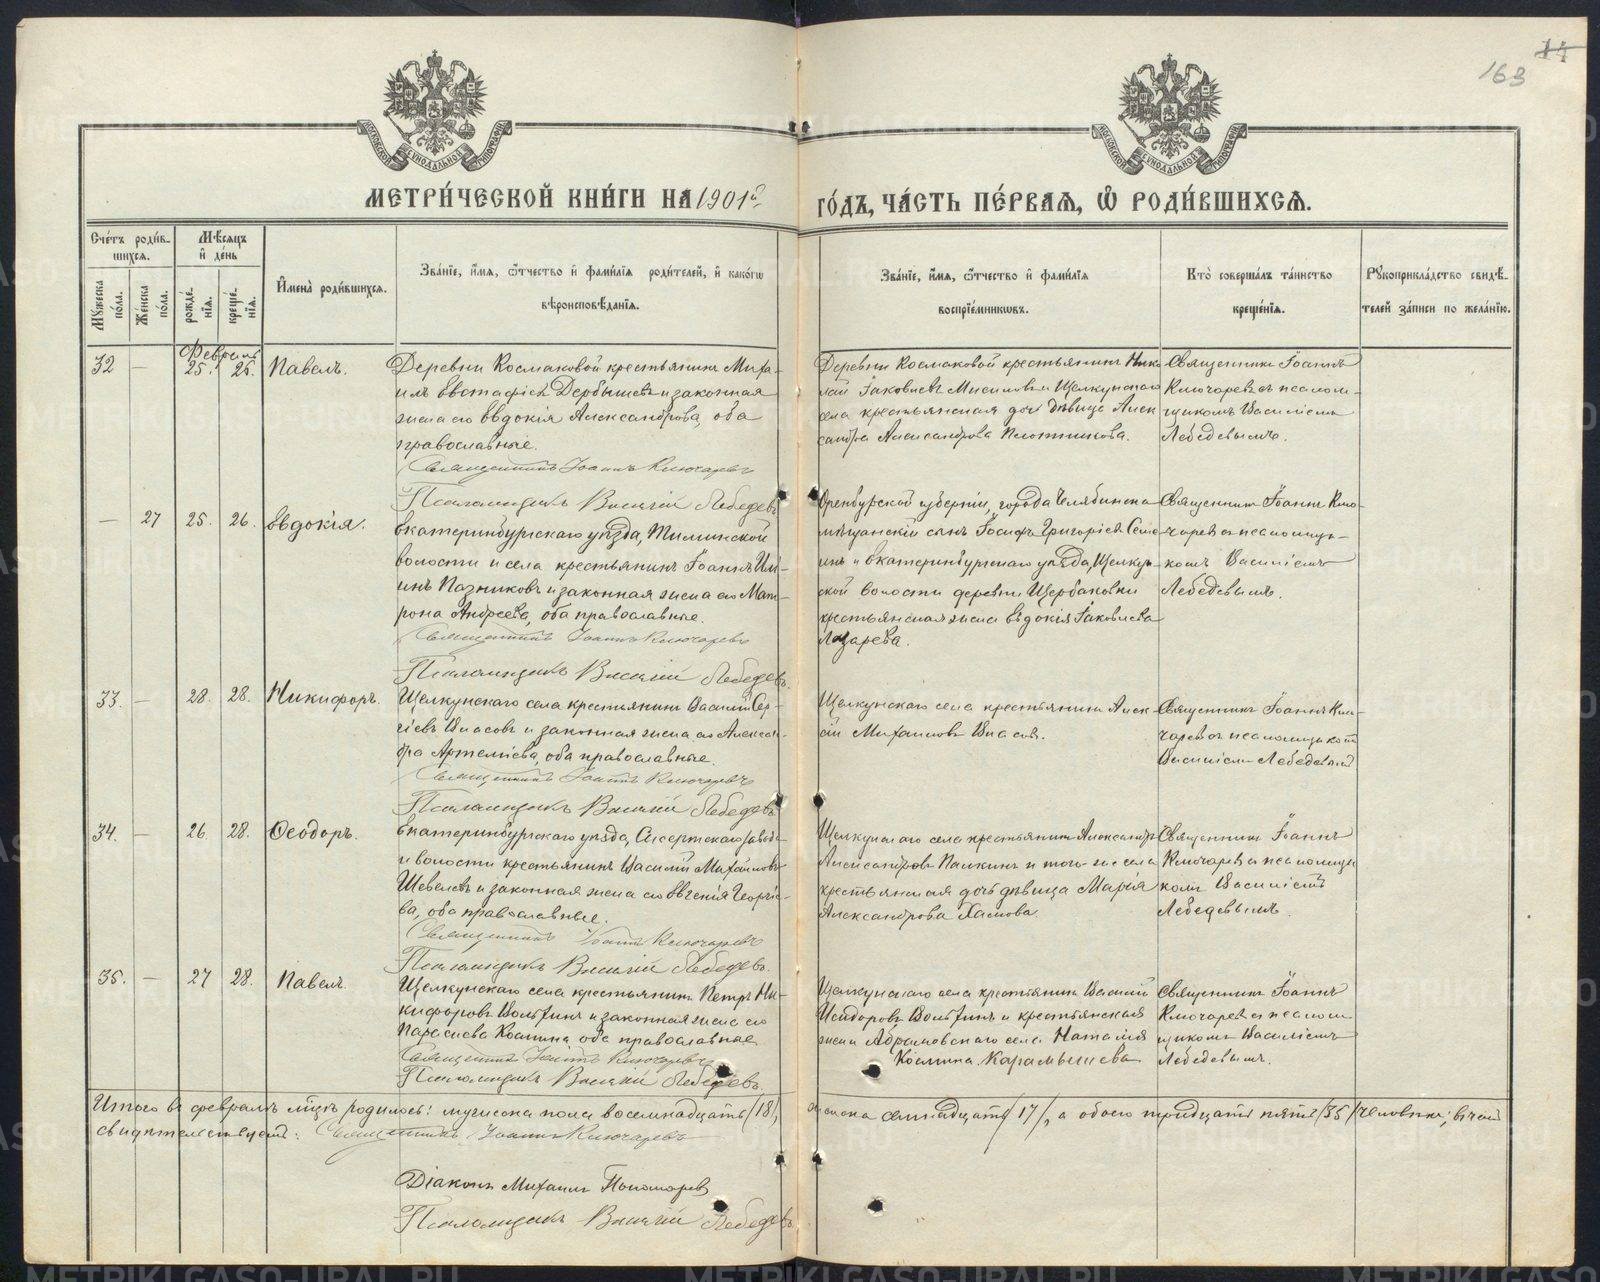 163
МОСКОВСКОЙ СУНОДАЛЬНОЙ ТИПОГРАФІИ
МОСКОВСКОЙ СУНОДАЛЬНОЙ ТИПОГРАФІИ
МЕТРИ́ЧЕСКОЙ КНИ́ГИ НА 1901й
ГО́ДЪ, ЧА́СТЬ ПЕ́РВАѦ, Ѿ РОДИ́ВШИХСѦ.
Сче́тъ роди́в-
шихся.
Мꙋжеска по́ла.
Же́нска по́ла.
Мѣ́сяцъ и́ де́нь
рожде́-нїя.
креще́-нїя.
И҆мена̀ роди́вшихся.
Зва́нїе, и҆́мя, ѻ҆́тчество и҆ фами́лїя роди́телей, и҆ како́гѡ
вѣроисповѣ́данїя.
Зва́нїе, и҆́мя, ѻ҆́тчество и҆ фами́лїя
воспрїе́мникѡвъ.
Кто̀ соверша́лъ та́инство
креще́нїя.
Рꙋкоприкла́дство свидѣ́-
телей за́писи по жела́нїю.
Февраль
32 — 25. 25. Павелъ.
Деревни Космаковой крестьянинъ Миха-
илъ Евстафіевъ Дербышевъ и законная
жена его Евдокія Александрова, оба
православные.
Священникъ Іоаннъ Ключаревъ
Псаломщикъ Василій Лебедевъ
Деревни Космаковой крестьянинъ Нико
лай Іаковлевъ Мисиловъ и Щелкунскаго
села крестьянская дочь дѣвица Алек
сандра Александрова Плотникова.
Священникъ Іоаннъ
Ключаревъ съ псалом-
щикомъ Василіемъ
Лебедевымъ.
— 27 25. 26. Евдокія.
Екатеринбургскаго уѣзда,
волости и села крестьянинъ Іоаннъ Иль-
инъ Пазниковъ и законная жена его Мат-
рона Андреева, оба православные.
Священникъ Іоаннъ Ключаревъ
Псаломщикъ Василій Лебедевъ.
Оренбургской губерніи, города Челябинска
мѣщанскій сынъ Іосифъ Григоріевъ Семе
инъ и Екатеринбургскаго уѣзда, Щелкун-
ской волости деревни Щербаковки
крестьянская жена Евдокія Іаковлева
Лазарева.
Священникъ Іоаннъ Клю-
чаревъ съ псаломщи-
комъ Василіемъ
Лебедевымъ.
33. — 28. 28. Никифоръ.
Щелкунскаго села крестьянинъ Василій Сер-
гіевъ Власовъ и законная жена его Алексан-
дра Артеміева, оба православные.
Священникъ Іоаннъ Ключаревъ
Псаломщикъ Василій Лебедевъ
Щелкунскаго села крестьянинъ Алек-
сѣй Михаиловъ Власовъ.
Священникъ Іоаннъ Клю-
чаревъ съ псаломщикомъ
Василіемъ Лебедевымъ
34. — 26. 28. Ѳеодоръ.
Екатеринбургскаго уѣзда, Сысертскаго завода
и волости крестьянинъ Василій Михаиловъ
Шевелевъ и законная жена его Евгенія Георгіе-
ва, оба православные.
Священникъ Іоаннъ Ключаревъ
Псаломщикъ Василій Лебедевъ.
Щелкунскаго села крестьянинъ Александръ
Александровъ Палкинъ и того-же села
крестьянская дочь дѣвица Марія
Александрова Хамова.
Священникъ Іоаннъ
Ключаревъ съ псаломщи
комъ Василіемъ
Лебедевымъ.
35. — 27 28. Павелъ.
Щелкунскаго села крестьянинъ Петръ Ни-
кифоровъ и законная жена его
Параскева Космина, оба православные
Священникъ Іоаннъ Ключаревъ
Псаломщикъ Василій Лебедевъ.
Щелкунскаго села крестьянинъ Василій
Исидоровъ и крестьянская
жена Абрамовскаго села Наталія
Космина Карамышева
Священникъ Іоаннъ
Ключаревъ съ псалом
щикомъ Василіемъ
Лебедевымъ.
Итого въ февралѣ мѣсяцѣ родилось: мужеска пола восемнадцать /18/,
женска семнадцать /17/, а обоего тридцать пять /35/ человѣкъ; въ чемъ
свидѣтельствуетъ: Священникъ Іоаннъ Ключаревъ
Діаконъ Михаилъ Пономаревъ
Псаломщикъ Василій Лебедевъ
METRIKI.GASO-URAL.RU